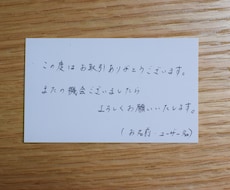 この度はお取引ありがとうございます。
またの機会ございましたら
よろしくお願いいたします。
(お名前・ユーザー名)